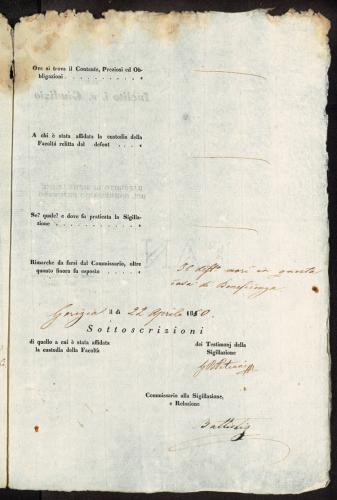 Ove si trova il Contante, Preziosi ed Ob-
bligazioni . . . . . . . . . . . «
A chi è stata affidata la custodia della
Facoltà relitta dal defont . . . «
Se? quale? e dove fu praticata la Sigilla-
zione . . . . . . . . . . . . «
Rimarche da farsi dal Commissario, oltre
quanto finora fu esposto . . . . «
morì in questa
casa di Beneficenza.
Gorizia à di 22 Aprile 1850.
Sottoscrizioni
di quello a cui è stata affidata
la custodia della Facoltà
dei Testimonj della
Sigillazione
Commissario alla Sigillazione,
e Relazione